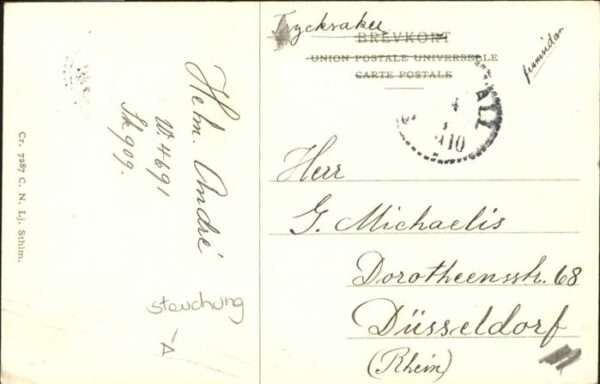 Trycksaker
BREVKORT
UNION POSTALE UNIVERSELLE
CARTE POSTALE
framsidan
4
10
Helm. André
W. 4691
Sk 909.
Cr. 7287 C. N. Lj. Sthlm.
Herr
G. Michaelis
Dorotheenstr. 68
Düsseldorf
(Rhein)
stauchung
A